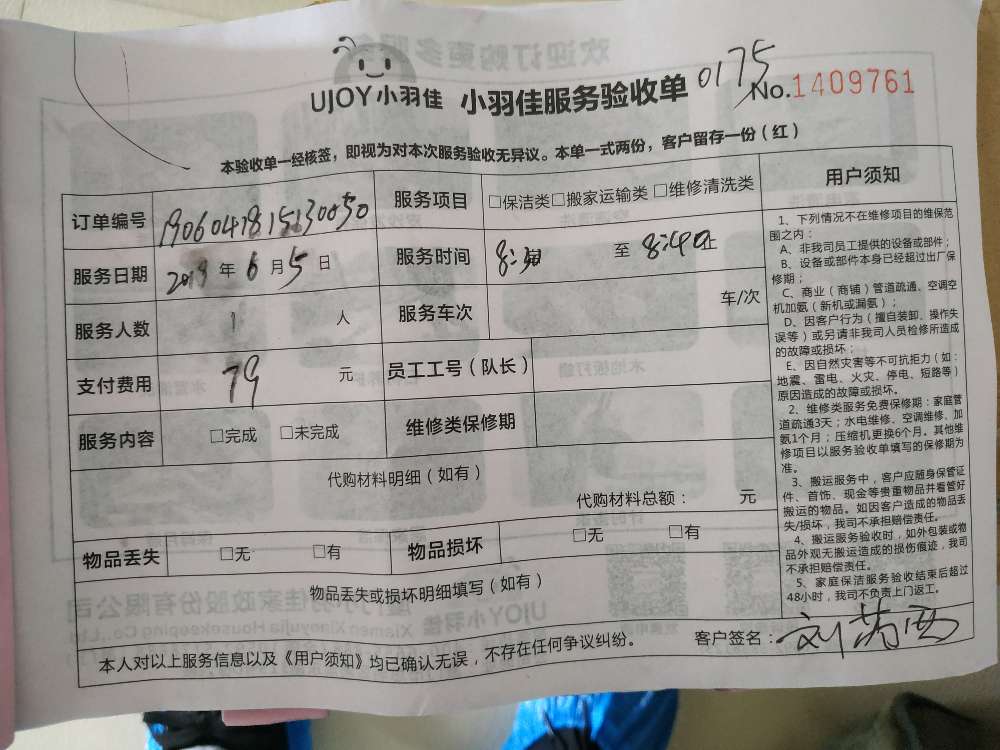 UJOY小羽佳 小羽佳服务验收单 0175 No.1409761
本验收单一经核签，即视为对本次服务验收无异议。本单一式两份，客户留存一份（红）
订单编号 服务项目 □保洁类□搬家运输类 □维修清洗类
服务日期 2019 年 6 月 5 日 服务时间 至 8:40止
服务人数 1 人 服务车次 车/次
支付费用 79 元 员工工号（队长）
服务内容 □完成 □未完成 维修类保修期
代购材料明细（如有）
代购材料总额： 元
物品丢失 □无 □有 物品损坏 □无 □有
物品丢失或损坏明细填写（如有）
本人对以上服务信息以及《用户须知》均已确认无误，不存在任何争议纠纷。 客户签名：
用户须知
1、下列情况不在维修项目的维保范
围之内：
A、非我司员工提供的设备或部件；
B、设备或部件本身已经超过出厂保
修期；
C、商业（商铺）管道疏通、空调空
机加氨（新机或漏氨）；
D、因客户行为（擅自装卸、操作失
误等）或另请非我司人员检修所造成
的故障或损坏；
E、因自然灾害等不可抗拒力（如：
地震、雷电、火灾、停电、短路等）
原因造成的故障或损坏。
2、维修类服务免费保修期：家庭管
道疏通3天；水电维修、空调维修、加
氨1个月；压缩机更换6个月。其他维
修项目以服务验收单填写的保修期为
准。
3、搬运服务中，客户应随身保管证
件、首饰、现金等贵重物品并看管好
搬运的物品。如因客户造成的物品丢
失/损坏，我司不承担赔偿责任。
4、搬运服务验收时，如外包装或物
品外观无搬运造成的损伤痕迹，我司
不承担赔偿责任。
5、家庭保洁服务验收结束后超过
48小时，我司不负责上门返工。